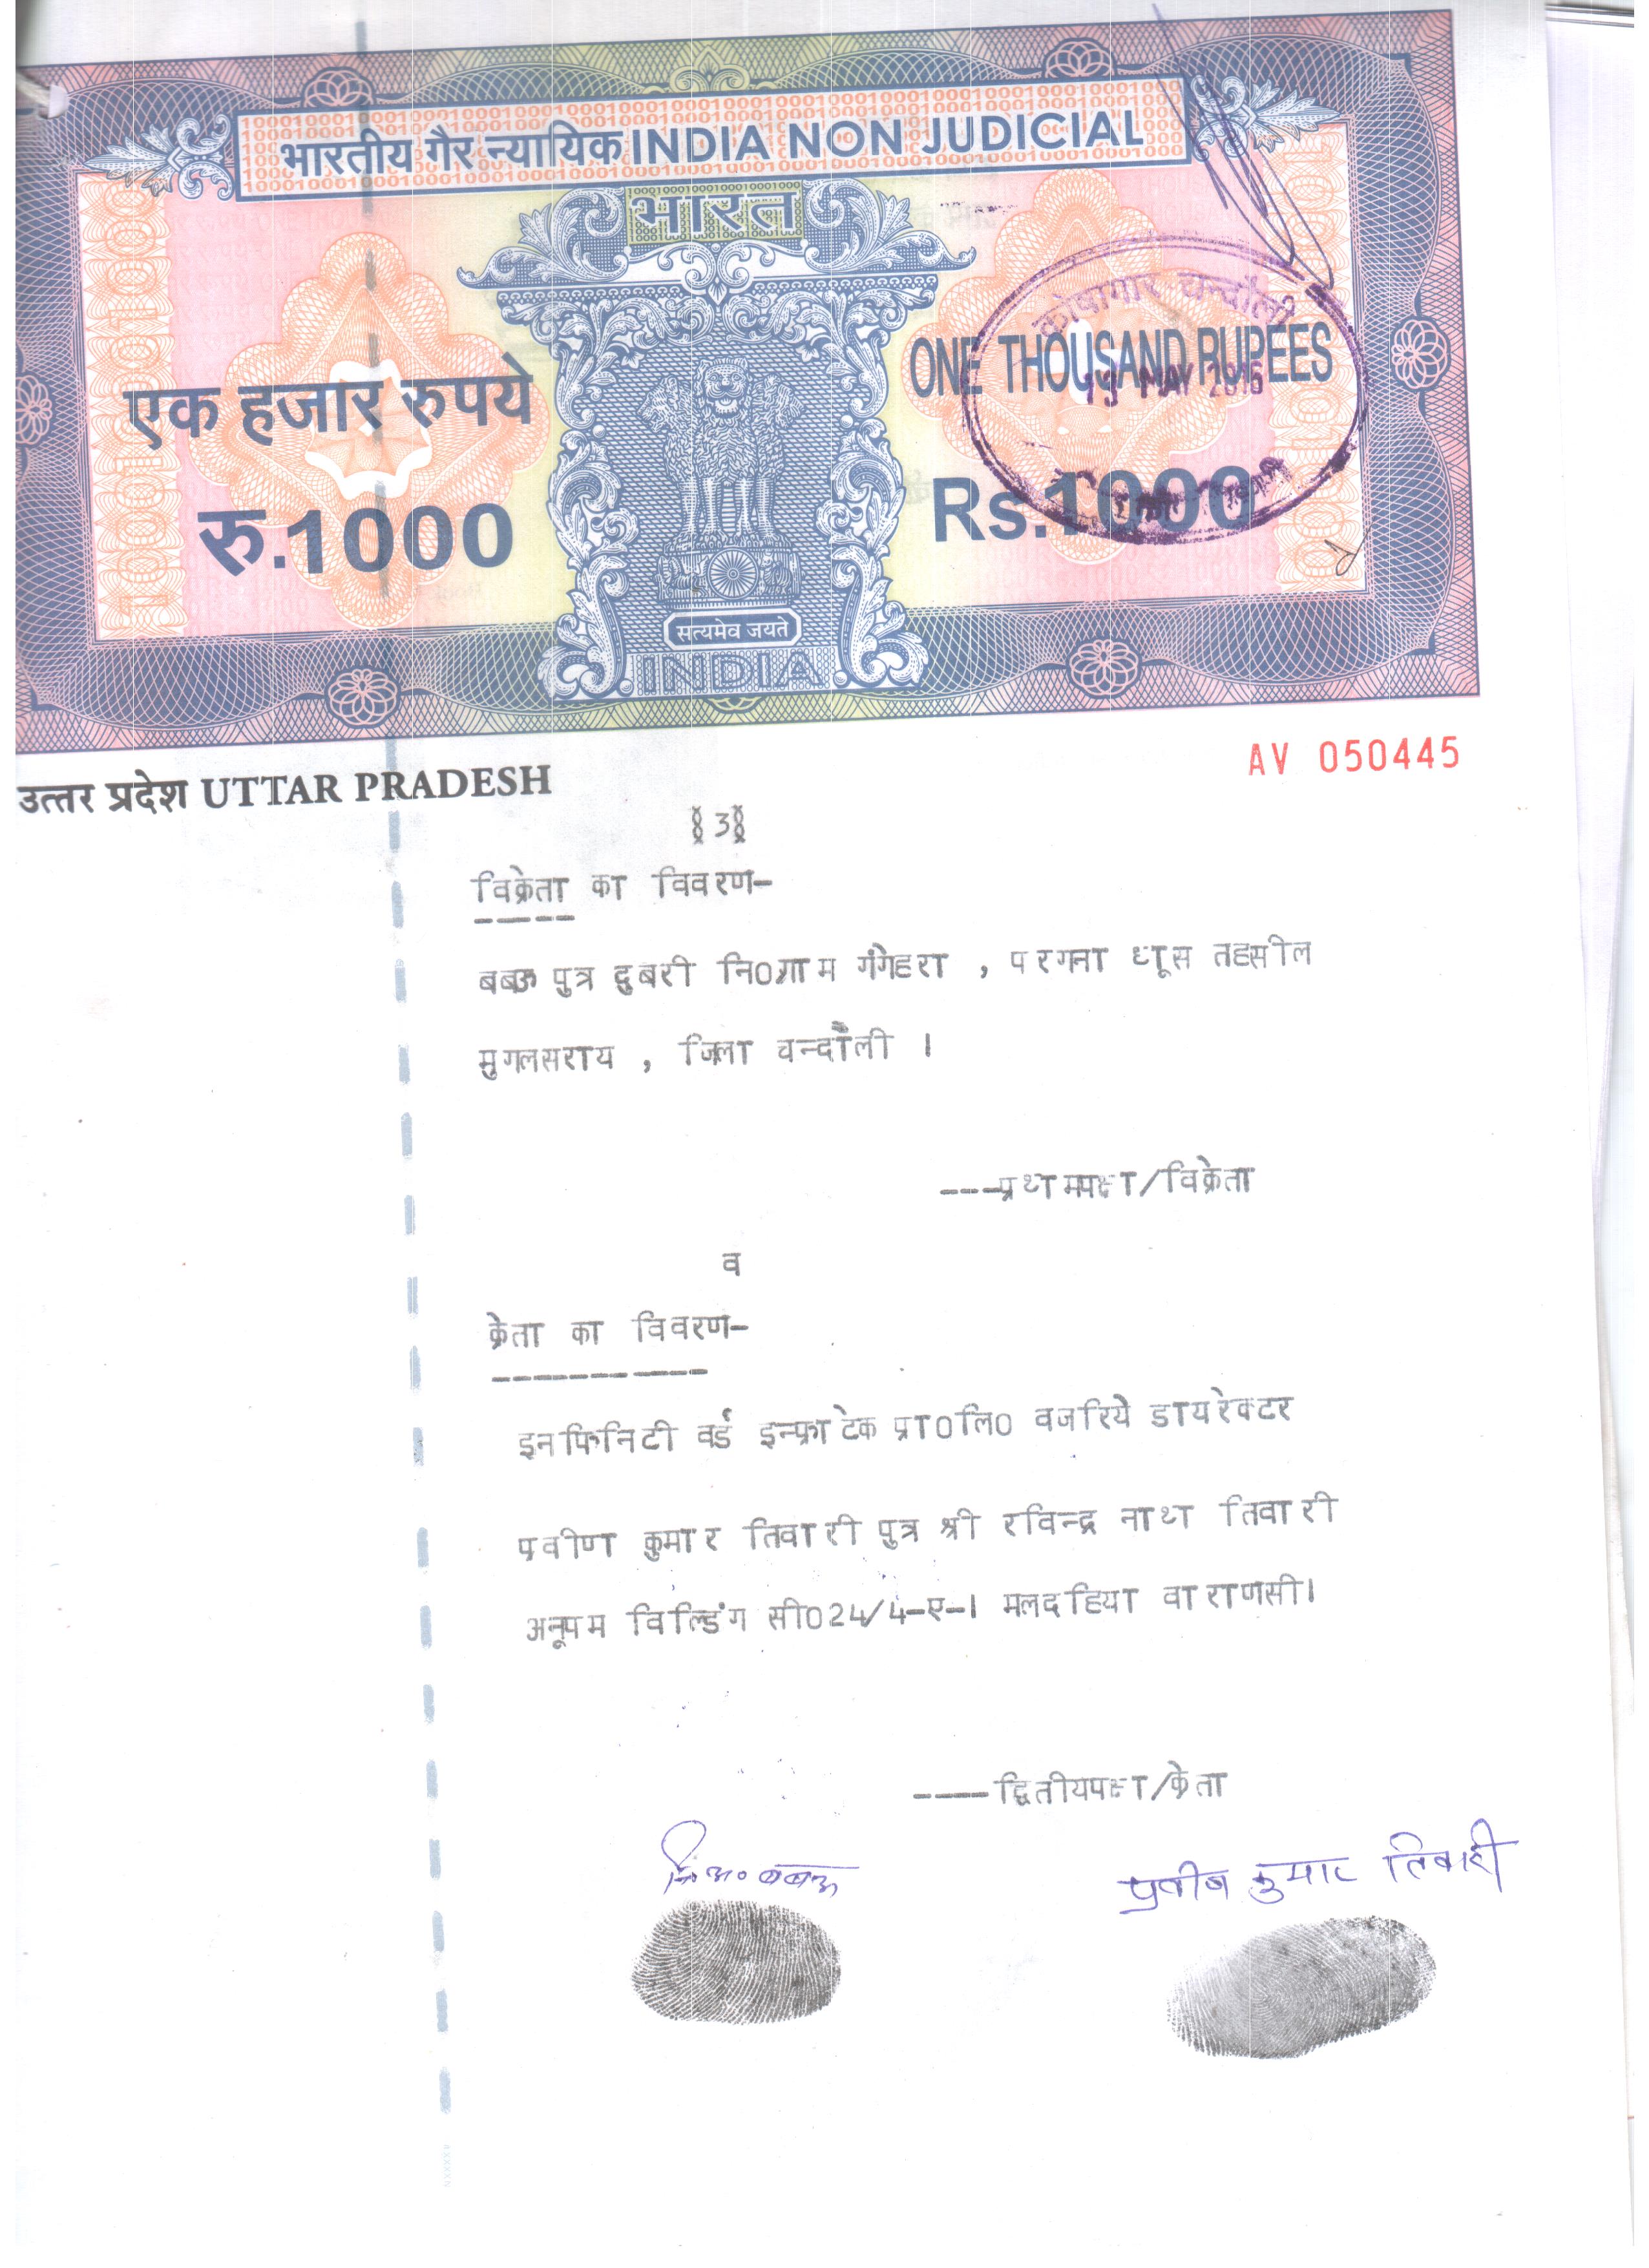 भारतीय गैर न्यायिक INDIA NON JUDICIAL
भारत
कोषागार चन्दौली
एक हजार रुपये
ONE THOUSAND RUPEES
13 MAY 2016
रु.1000
Rs.1000
सत्यमेव जयते
INDIA
उत्तर प्रदेश UTTAR PRADESH
AV 050445
§3§
विक्रेता का विवरण-
बबऊ पुत्र दुबरी नि0ग्राम गंगेहरा , परगना धूस तहसील
मुगलसराय , जिला चन्दौली ।
----प्रथमपक्ष/विक्रेता
व
क्रेता का विवरण-
इनफिनिटी वर्ड इन्फ्राटेक प्रा0लि0 वजरिये डायरेक्टर
प्रवीण कुमार तिवारी पुत्र श्री रविन्द्र नाथ तिवारी
अनूपम विल्डिंग सी024/4-ए-। मलदहिया वाराणसी।
----द्वितीयपक्ष/क्रेता
नि0अ0 बबऊ
प्रवीण कुमार तिवारी